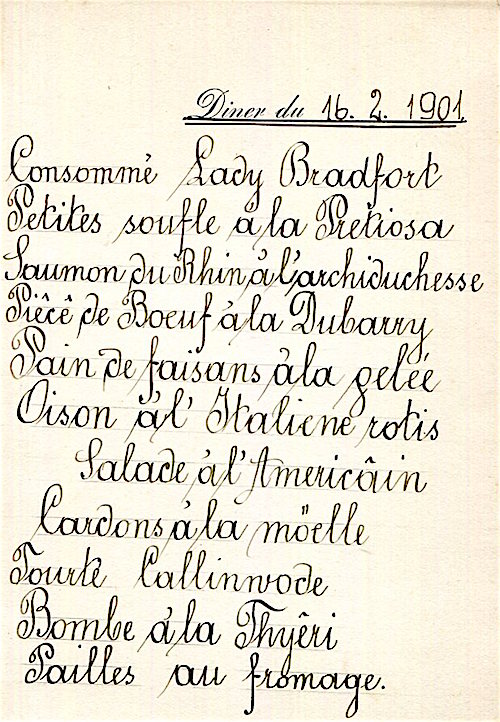 Diner du 16. 2. 1901.
Consommé Lady Bradfort
Petites soufle à la Pretiosa
Saumon du Rhin à l'archiduchesse
Piêcê de Boeuf à la Dubarry
Pain de faisans à la geleé
Oison à l' Italiene rotis
Salade à l' Americâin
Cardons à la möelle
Tourte Callinwode
Bombe à la Thyêri
Pailles au fromage.